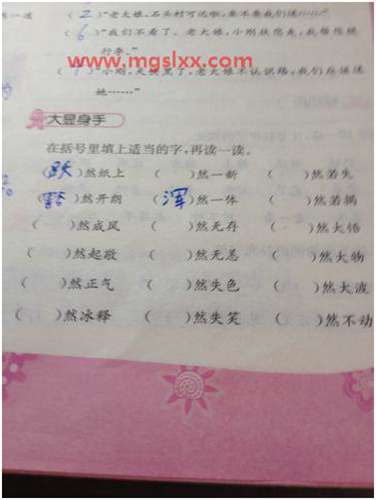 (2)"老大娘,石头村可远啦,要不要我们送……"
(6)"我们不看了。老大娘,小刚扶您走,我帮您提
行李。"
www.mgslxx.com
(1)"小刚,天快黑了,老大娘不认识路,我们应该送
她……"
大显身手
在括号里填上适当的字,再读一读。
(跃)然纸上 ( )然一新 ( )然若失
(豁)然开朗 (浑)然一体 ( )然若揭
( )然成风 ( )然无存 ( )然大悟
( )然起敬 ( )然无恙 ( )然大物
( )然正气 ( )然失色 ( )然大波
( )然冰释 ( )然失笑 ( )然不动